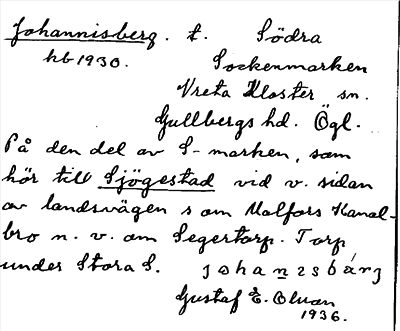 Johannisberg. t. Södra
hb 1930. Sockenmarken
Vreta Kloster sn.
Gullbergs hd. Ögl.
På den del av S-marken, som
hör till Sjögestad vid v. sidan
av landsvägen s om Malfors Kanal-
bro n. v. om Segertorp. Torp
under Stora S. johanısbárj
Gustaf E. Olson
1936.